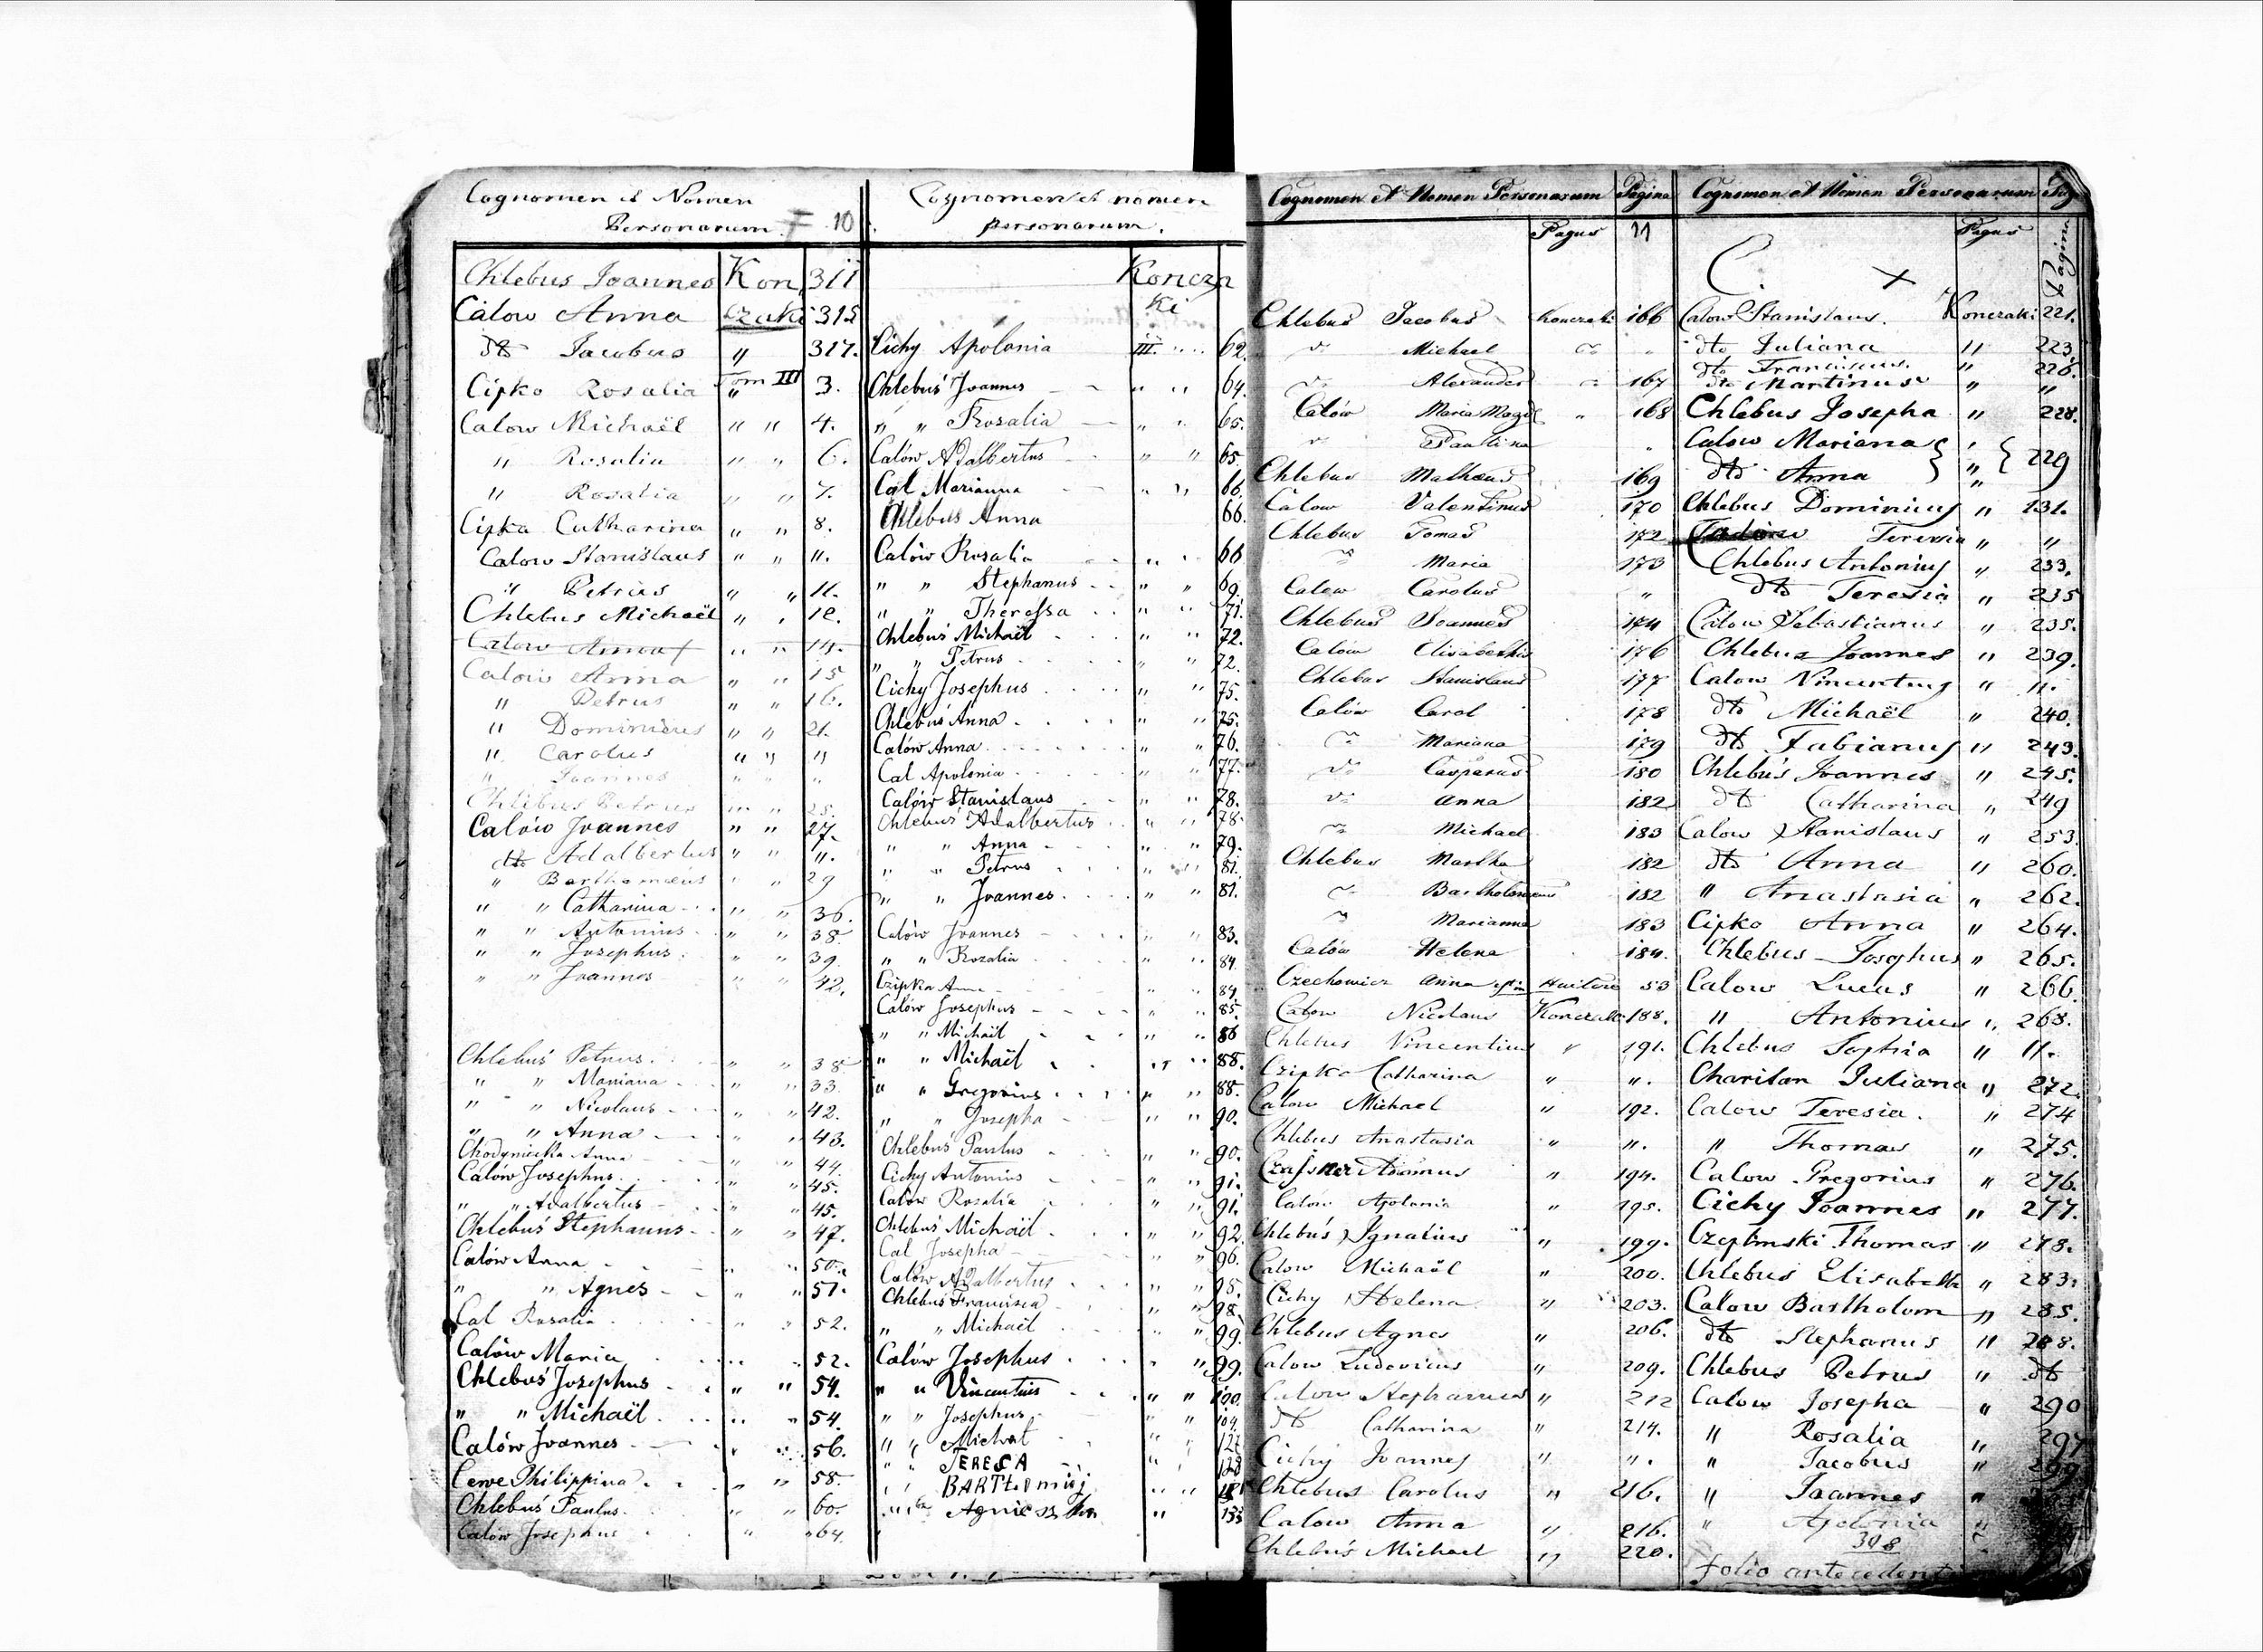 Cognomen et Nomen
Personarum. F 10
Chlebus Joannes Kon 311
Calow Anna czaki 315
dto Jacobus " 317.
Cipko Rosalia Tom III " 3.
Calow Michaël " " 4.
" Rosalia " " 6.
" Rosalia " " 7.
Cipka Catharina " " 8.
Calow Stanislaus " " 11.
" Petrus " " 11.
Chlebus Michaël " " 12.
Calow Anna " " 14.
Calow Anna " " 15
" Petrus " " 16.
" Dominicus " " 21.
" Carolus " " "
" Joannes " " "
Chlebus Petrus " " 25.
Calów Joannes " " 27.
dto Adalbertus " " 11.
" Barthomæus " " 29
" " Catharina " " 36.
" " Antonius " " 38.
" " Josephus " " 39.
" " Joannes " " 42.
Chlebuś Petrus " " 38
" " Mariana " " 33.
" " Nicolaus " " 42.
" " Anna " " 43.
Chodynicka Anna " " 44.
Calów Josephus " " 45.
" " Adalbertus " " 45.
Chlebuś Stephanus " " 47.
Calów Anna " " 50.
" " Agnes " " 51.
Cal Rosalia " " 52.
Calów Maria " " 52.
Chlebuś Josephus " " 54.
" " Michaël " " 54.
Calów Joannes " " 56.
Cerve Philippina " " 58.
Chlebuś Paulus " " 60.
Calów Josephus " " 64.
Cognomen et nomen
personarum.
Koncza
ki
Cichy Apolonia III. " 62.
Chlebuś Joannes " " 64.
" " Rosalia " " 65.
Calów Adalbertus " " 65
Cal Marianna " " 66.
Chlebuś Anna 66.
Calów Rosalia " " 68
" " Stephanus " " 69.
" " Theressa " " 71.
Chlebuś Michaël " " 72.
" " Petrus " " 72.
Cichy Josephus " " 75.
Chlebuś Anna " " 75.
Calów Anna " " 76.
Cal Apolonia " " 77.
Calów Stanislaus " " 78.
Chlebuś Adalbertus " " 78.
" " Anna " " 79.
" " Petrus " " 81.
" " Joannes " " 81.
Calów Joannes " " 83.
" " Rozalia " " 84.
Czipka Anna " " 84.
Calów Josephus " " 85.
" " Michaël " " 86
" " Michaël " " 88.
" " Gregorius " " 88.
" " Josepha " " 90.
Chlebuś Paulus " " 90.
Cichy Antonius " " 91.
Calów Rosalia " " 91.
Chlebuś Michaël " " 92.
Cal Josepha " " 96.
Calów Adalbertus " " 95.
Chlebuś Francisca " " 98.
" " Michaël " " 99.
Calów Josephus " " 99.
" " Vincentius " " 100.
" " Josephus " " 104.
" " Michał " "
" " TERESA " " 128
" " BARTŁOMIEJ " "
" " Agnieszka " 153
Cognomen et Nomen Personarum Pagina
Pagus 11
Chlebus Jacobus Konczaki 166
" Michael " "
" Alexander " 167
Calów Maria Magd " 168
" Paulina "
Chlebus Matheus 169
Calow Valentinus 170
Chlebus Tomas 172
" Maria 173
Calow Carolus "
Chlebus Joannes 174
Calów Elisabethis 176
Chlebus Stanislaus 177
Calów Carol 178
" Mariana 179
" Casparus 180
" Anna 182
" Michael 183
Chlebus Martha 182
" Bartholomeus 182
" Marianna 183
Calów Helena 184.
Czechowicz Anna 53
Calow Nicolaus Konczaki 188.
Chlebus Vincentius " 191.
Czipko Catharina " ".
Calow Michael " 192.
Chlebus Anastasia " ".
" 194.
Calow Apolonia " 195.
Chlebuś Ignatius " 199.
Calow Michaël " 200.
Cichy Helena " 203.
Chlebus Agnes " 206.
Calow Ludovicus " 209.
Calow Stephanus " 212
dto Catharina " 214.
Cichy Joannes " ".
Chlebus Carolus " 216.
Calow Anna " 216.
Chlebuś Michael " 220.
Cognomen et Nomen Personarum Pag
C. x Pagus Pagina
Calow Stanislaus. Konczaki 221.
dto Juliana " 223.
dto Franciscus. " 226.
dto Martinus " "
Chlebus Josepha " 228.
Calow Mariana "
dto Anna " 229
Chlebus Dominicus " 231.
Teressia " "
Chlebus Antonius " 233.
dto Teresia " 235
Calow Sebastianus " 235.
Chlebus Joannes " 239.
Calow Vincentius " 11.
dto Michaël " 240.
dto Fabianus " 243.
Chlebuś Joannes " 245.
dto Catharina " 249
Calow Stanislaus " 253
dto Anna " 260.
" Anastasia " 262.
Cipko Anna " 264.
Chlebus Josephus " 265.
Calow Lucas " 266
" Antonius " 268.
Chlebus Sophia " 11.
Charitan Juliana " 272.
Calow Teresia. " 274
" Thomas " 275.
Calow Gregorius " 276.
Cichy Joannes " 277.
Thomas " 278.
Chlebus Elisabeth " 283.
Calow Bartholom " 285.
dto Stephanus " 288.
Chlebus Petrus " dto
Calow Josepha " 290
" Rosalia " 297
" Jacobus " 299
" Joannes "
" Apolonia "
308
folio antecedent